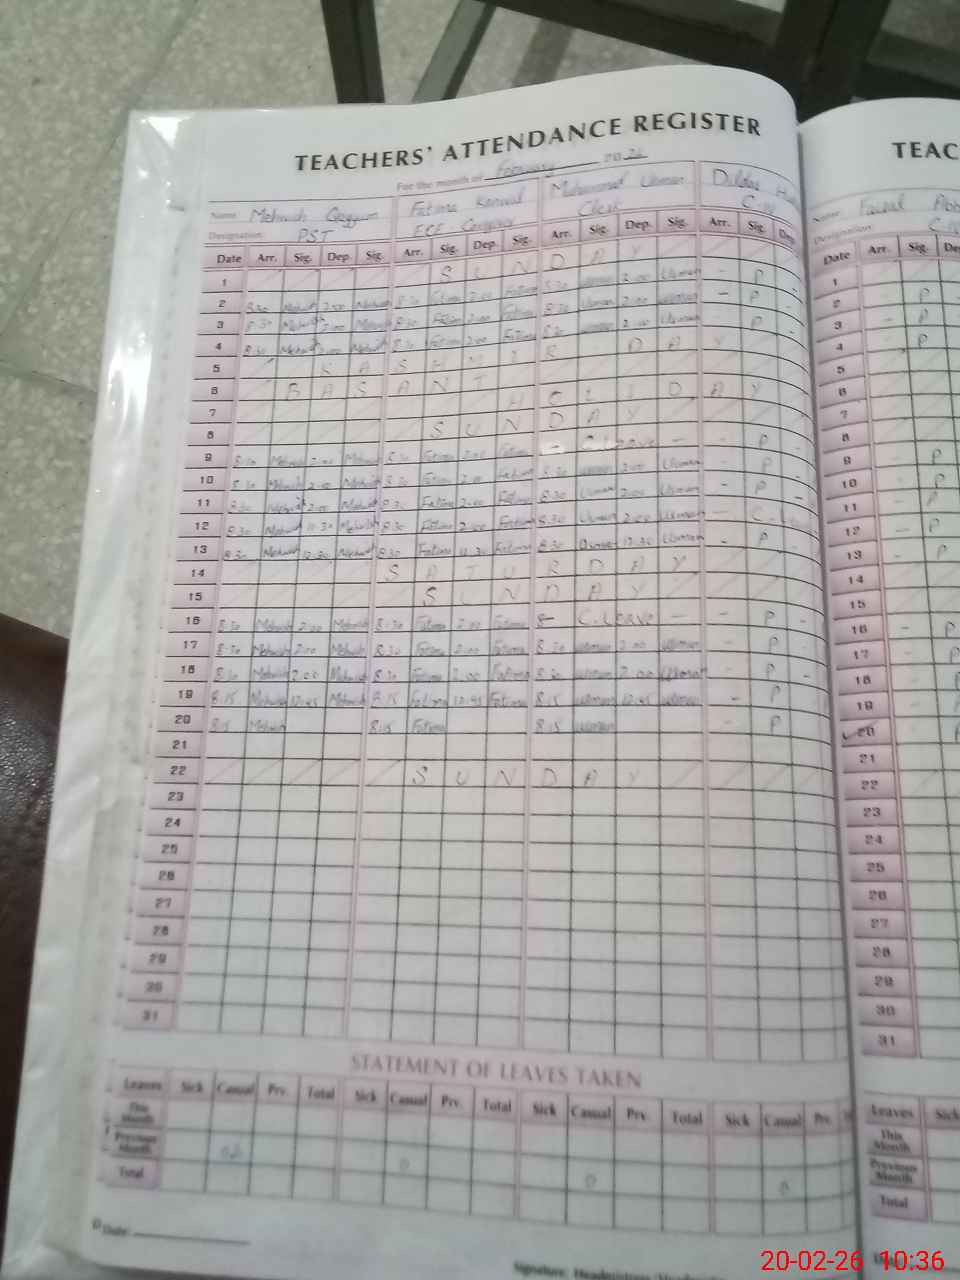 TEACHERS' ATTENDANCE REGISTER
TEAC
For the month of February 2026
Name Mehwish Qayyum Fatima Kanwal Muhammad Usman Dildar
Name Faisal
Designation PST ECE Clerk
Designation
Date Arr. Sig. Dep. Sig. Arr. Sig. Dep. Sig. Arr. Sig. Dep. Sig. Arr. Sig. Dep.
Date Arr. Sig. De
1 SUNDAY
2 8:30 Mehwish 2:00 Mehwish 8:30 Fatima 2:00 Fatima 8:30 usman 2:00 Usman - P -
3 8:30 Mehwish 2:00 Mehwish 8:30 Fatima 2:00 Fatima 8:30 Usman 2:00 usman - P
4 8:30 Mehwish 2:00 Mehwish 8:30 Fatima 2:00 Fatima 8:30 usman 2:00 Usman - P -
5 KASHMIR DAY
6 BASANT HOLIDAY
7
8 SUNDAY
9 8:30 Mehwish 2:00 Mehwish 8:30 Fatima 2:00 Fatima - C.leave - - P -
10 8:30 Mehwish 2:00 Mehwish 8:30 Fatima 2:00 Fatima 8:30 usman 2:00 Usman - P -
11 8:30 Mehwish 2:00 Mehwish 8:30 Fatima 2:00 Fatima 8:30 Usman 2:00 Usman - P -
12 8:30 Mehwish Mehwish 8:30 Fatima 2:00 Fatima 8:30 Usman 2:00 Usman -
13 8:30 Mehwish 12:30 Mehwish 8:30 Fatima 12:30 Fatima 8:30 Usman 12:30 Usman - P -
14 SATURDAY
15 SUNDAY
16 8:30 Mehwish 2:00 Mehwish 8:30 Fatima 2:00 Fatima C.Leave - - P -
17 8:30 Mehwish 2:00 Mehwish 8:30 Fatima 2:00 Fatima 8:30 usman 2:00 usman - P -
18 8:30 Mehwish 2:00 Mehwish 8:30 Fatima 2:00 Fatima 8:30 usman 2:00 Usman - P -
19 8:15 Mehwish 12:45 Mehwish 8:15 Fatima 12:45 Fatima 8:15 usman 12:45 usman - P
20 8:15 Mehwish 8:15 Fatima 8:15 usman - P
21
22 SUNDAY
23
24
25
26
27
28
29
30
31
1
2 P
3 - P
4 P
5
6
7
8
9 P
10 P
11 P
12 P
13 - P
14
15
16 - P
17 P
18 P
19 P
20 P
21
22
23
24
25
26
27
28
29
30
31
STATEMENT OF LEAVES TAKEN
Leaves Sick Casual Prv. Total Sick Casual Prv. Total Sick Casual Prv. Total Sick Casual Prv.
This Month
Previous Month
Total
Leaves Sick
This Month
Previous Month
Total
Date:
Signature: Headmistress/Headmaster
20-02-26 10:36